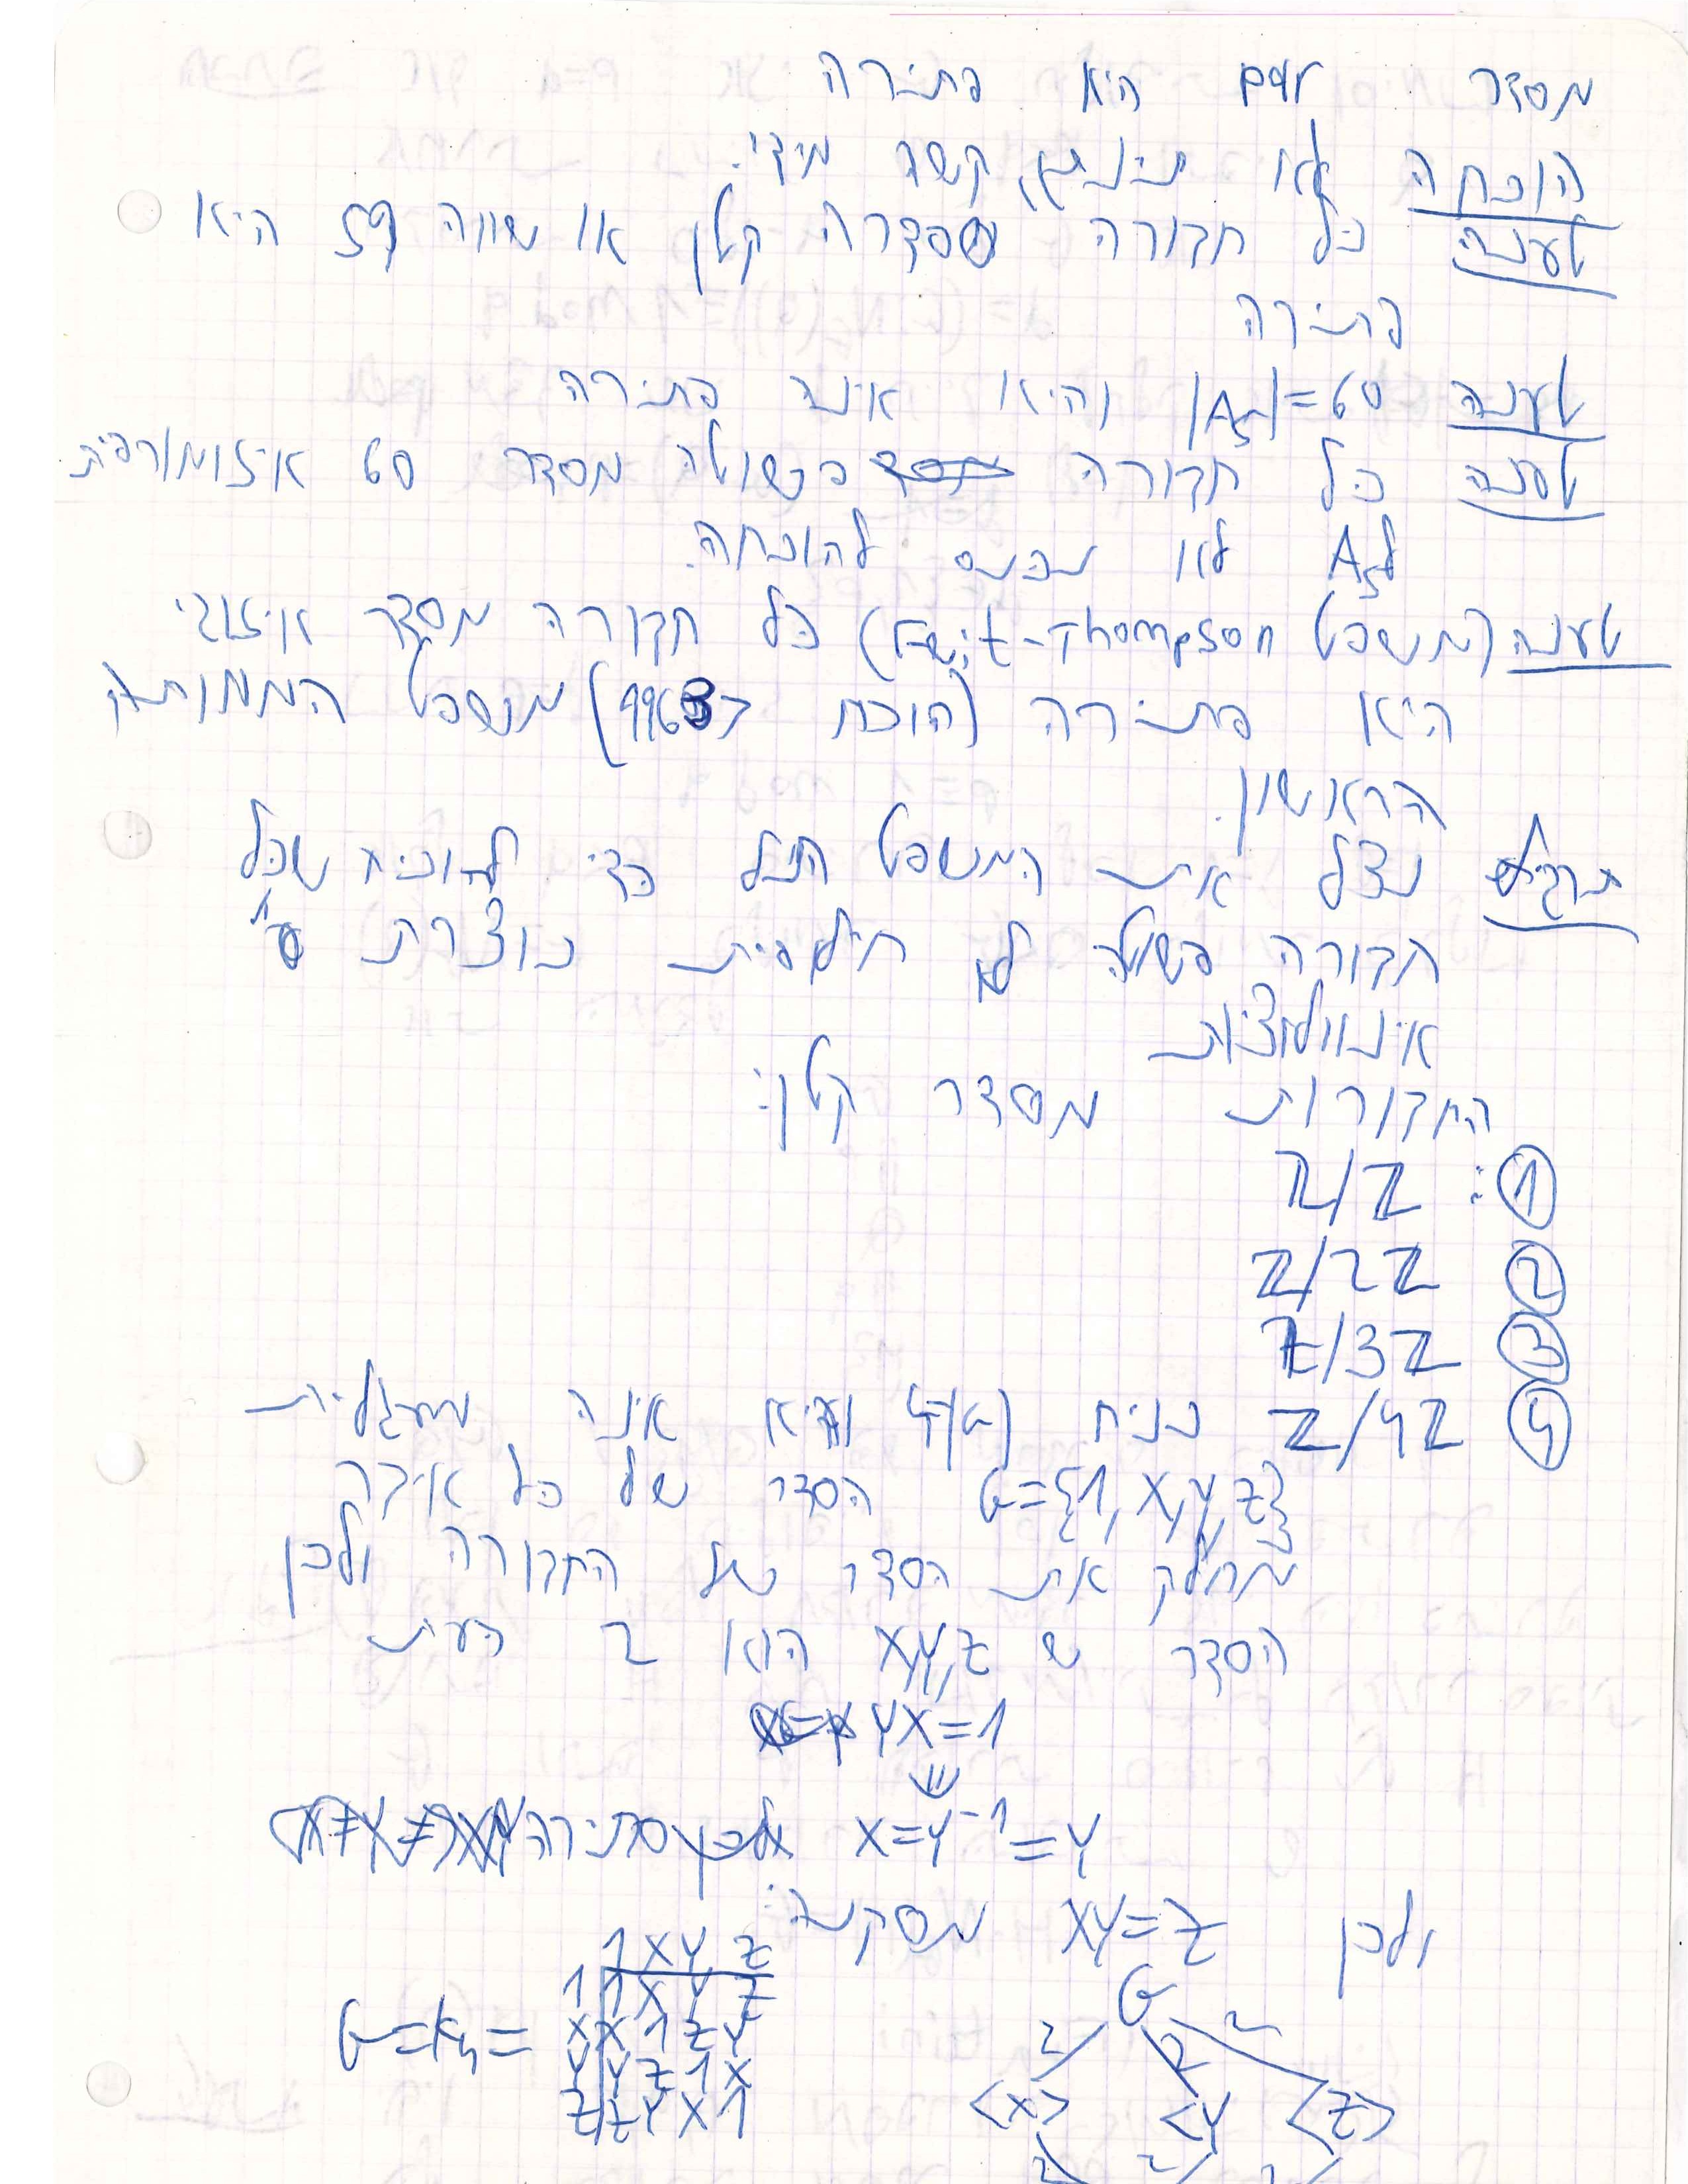 מסדר pqr היא פתירה
הוכחה לא תינתן, קשה מידי.
טענה כל חבורה שסדרה קטן או שווה 59 היא
פתירה
טענה |A5|=60 והיא אינה פתירה
טענה כל חבורה פשוטה מסדר 60 איזומורפית
לA5 לא נכנס להוכחה.
טענה (משפט Feit-Thompson) כל חבורה מסדר אי זוגי
היא פתירה (הוכח ב 1963) משפט המפלצת
הראשון.
תרגיל נצל את המשפט הנ"ל כדי להוכיח שכל
חבורה פשוטה לא חילופית נוצרת ע"י
אינוולוציות
החבורות מסדר קטן:
① : Z/Z
② Z/2Z
③ Z/3Z
④ Z/4Z נניח |G|=4 והיא אינה מעגלית
G={1,x,y,z} הסדר של כל איבר
מחלק את הסדר של החבורה ולכן
הסדר של x,y,z הוא 2 כעת
yx=1
⇓
x=y⁻¹=y סתירה
ולכן xy=z מסקנה:
G
2 2 2
<x> <y <z>
2 2 2
1 x y z
1 1 x y z
G=K4= x x 1 z y
y y z 1 x
z z y x 1